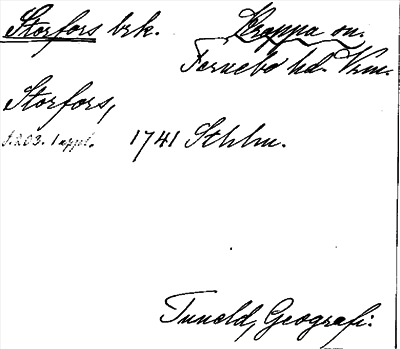 Storfors brk. Kroppa sn.
Fernebo hd. Vrm.
Storfors,
s. 203. 1 uppl. 1741 Sthlm.
Tuneld, Geografi.